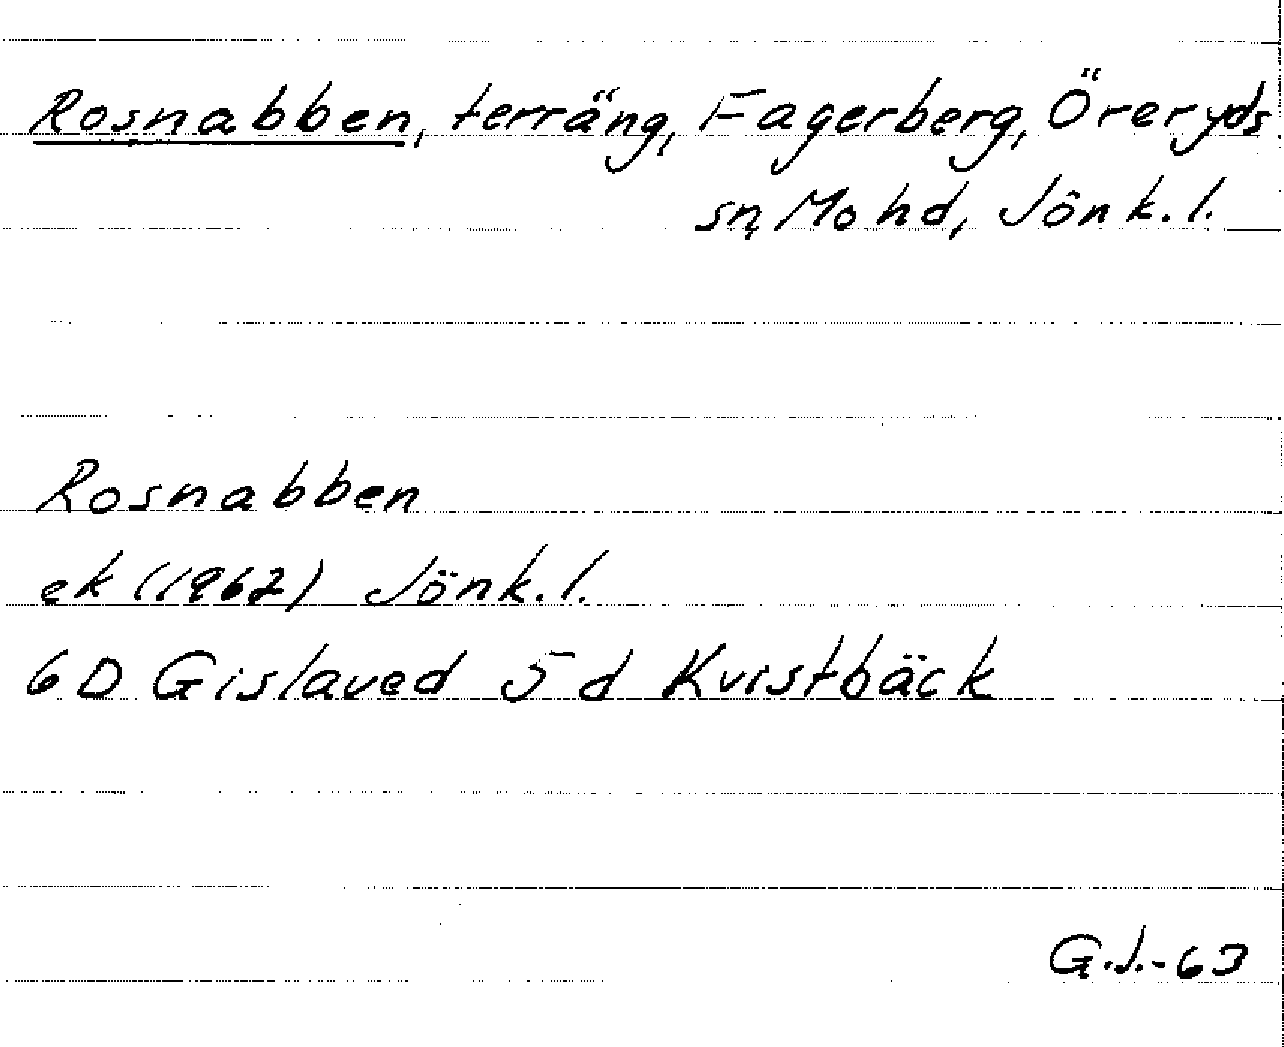 Rosnabben, terräng, Fagerberg, Öreryds
sn, Mo hd, Jönk.l.
Rosnabben
ek (1962) Jönk.l.
6D Gislaved 5 d Kvistbäck
G.J.-63